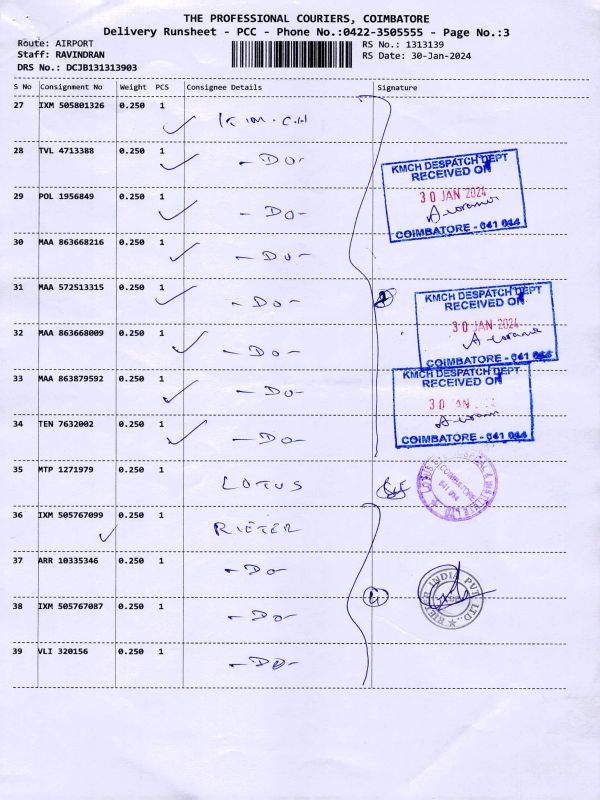 THE PROFESSIONAL COURIERS, COIMBATORE
Delivery Runsheet - PCC - Phone No.:0422-3505555 - Page No.:3
Route: AIRPORT
Staff: RAVINDRAN
DRS No.: DCJB131313903
RS No.: 1313139
RS Date: 30-Jan-2024
S No Consignment No Weight PCS Consignee Details Signature
27 IXM 505801326 0.250 1 K.M.C.H
28 TVL 4713388 0.250 1 -DO-
29 POL 1956849 0.250 1 -DO-
30 MAA 863668216 0.250 1 -DO-
31 MAA 572513315 0.250 1 -DO-
32 MAA 863668009 0.250 1 -DO-
33 MAA 863879592 0.250 1 -DO-
34 TEN 7632002 0.250 1 -DO-
35 MTP 1271979 0.250 1 LOTUS
36 IXM 505767099 0.250 1 RIETER
37 ARR 10335346 0.250 1 -DO-
38 IXM 505767087 0.250 1 -DO-
39 VLI 320156 0.250 1 -DO-
KMCH DESPATCH DEPT
RECEIVED ON
30 JAN 2024
COIMBATORE - 641 014
KMCH DESPATCH DEPT
RECEIVED ON
30 JAN 2024
COIMBATORE - 641 014
KMCH DESPATCH DEPT
RECEIVED ON
COIMBATORE - 641 014
COIMBATORE
641 014
4
RIETER INDIA PVT. LTD.,